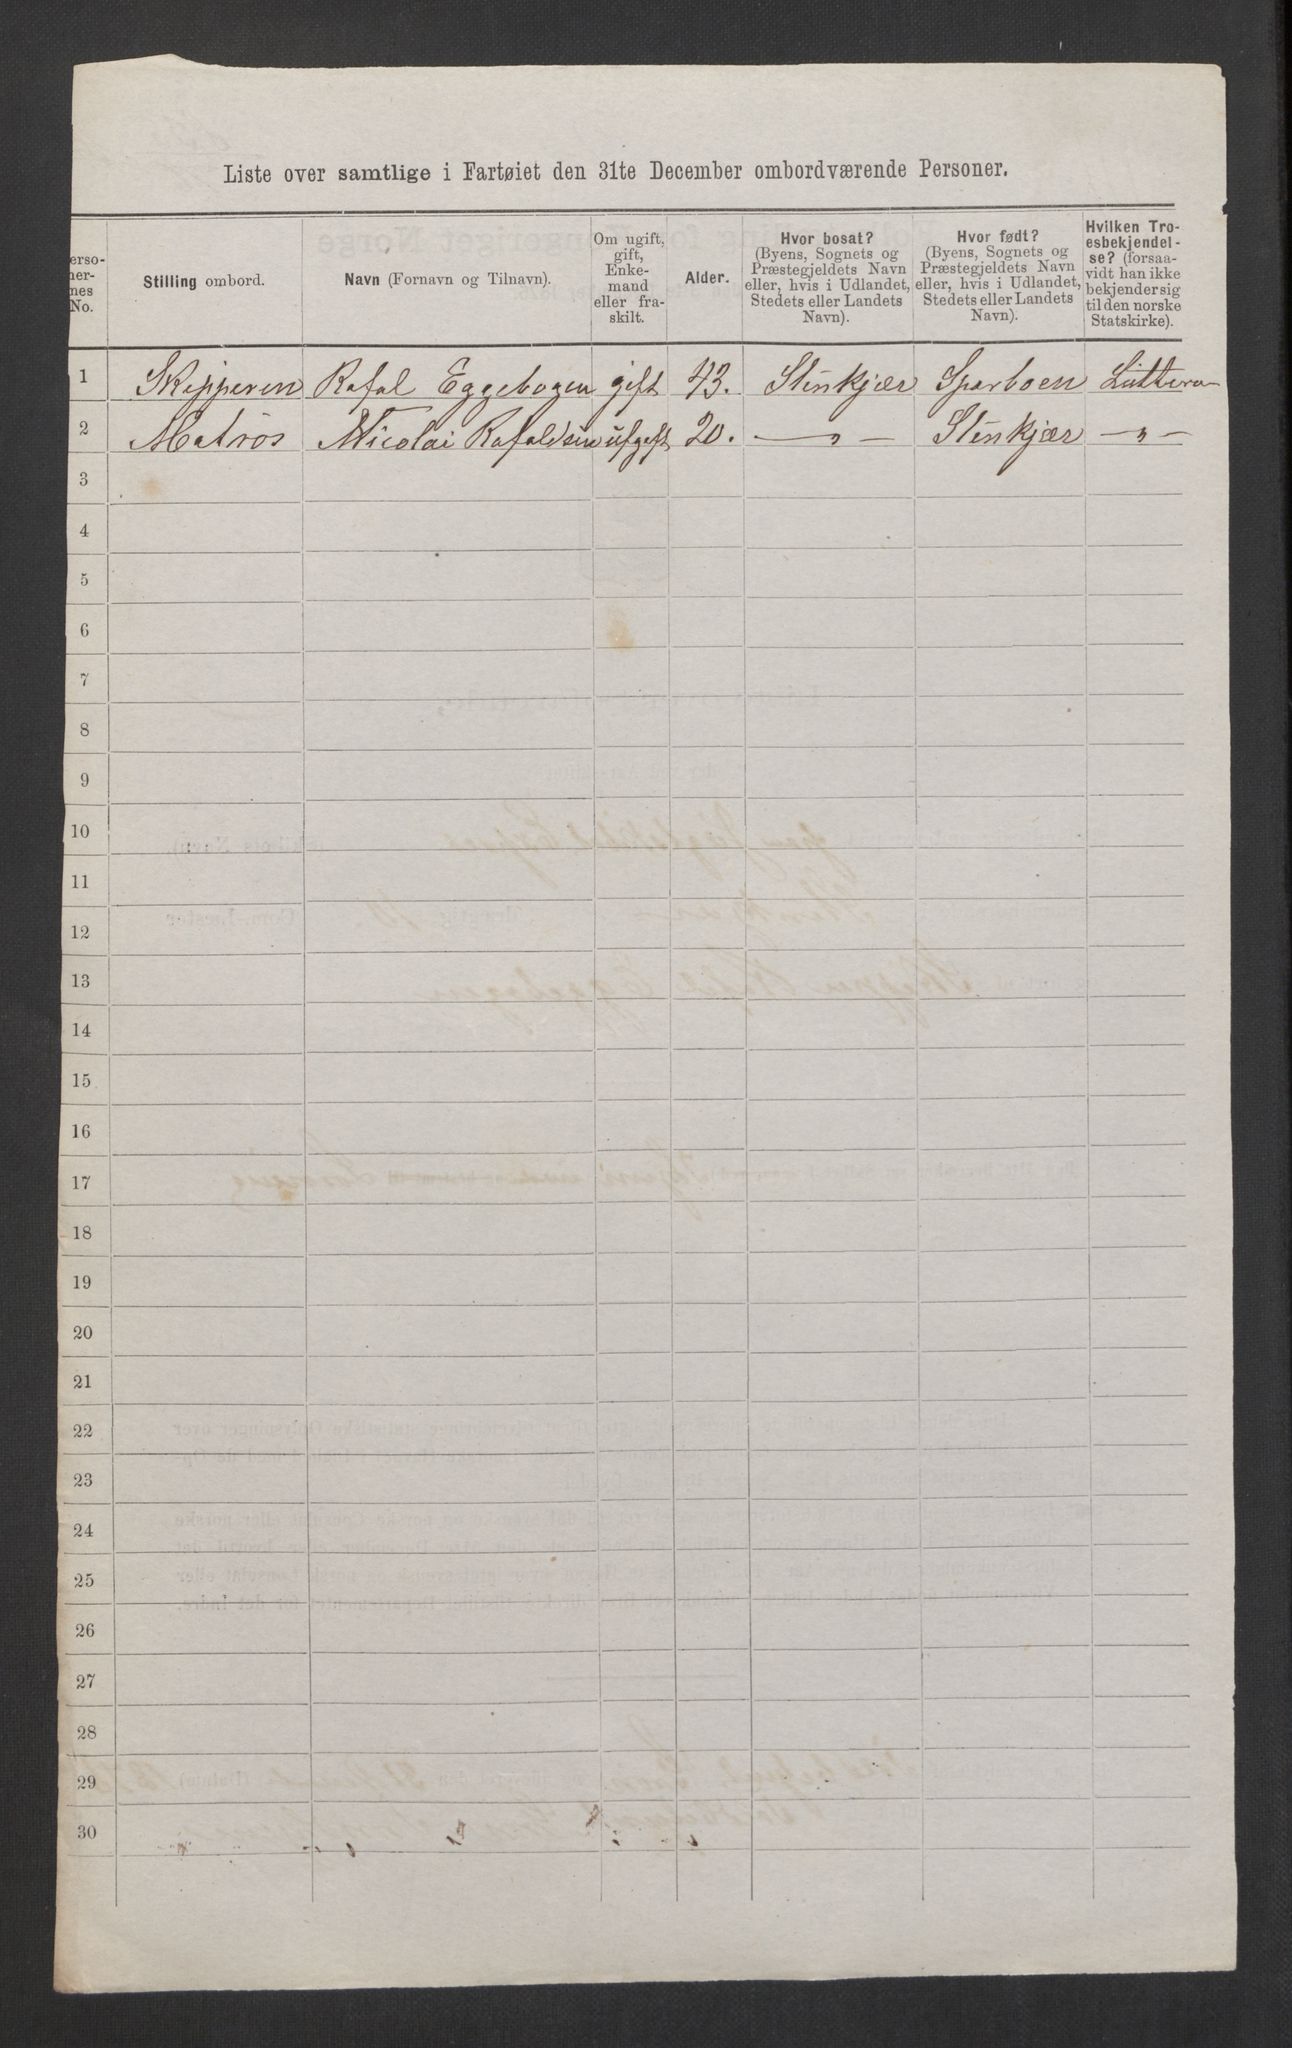 Liste over samtlige i Fartøiet den 31te December ombordværende Personer.
erso-
ner-
nes
No.
Stilling ombord.
Navn (Fornavn og Tilnavn).
Om ugift,
gift,
Enke-
mand
eller fra-
skilt.
Alder.
Hvor bosat?
(Byens, Sognets og
Præstegjeldets Navn
eller, hvis i Udlandet,
Stedets eller Landets
Navn).
Hvor født?
(Byens, Sognets og
Præstegjeldets Navn
eller, hvis i Udlandet,
Stedets eller Landets
Navn).
Hvilken Tro-
esbekjendel-
se? (forsaa-
vidt han ikke
bekjender sig
til den norske
Statskirke).
1 Skipperen Rafal Eggebogen gift 43. Stenkjær Sparboen Luttera
2 Matros Nicolai Rafaldsen ufgift 20. — „ — Stenkjær — „ —
3
4
5
6
7
8
9
10
11
12
13
14
15
16
17
18
19
20
21
22
23
24
25
26
27
28
29
30